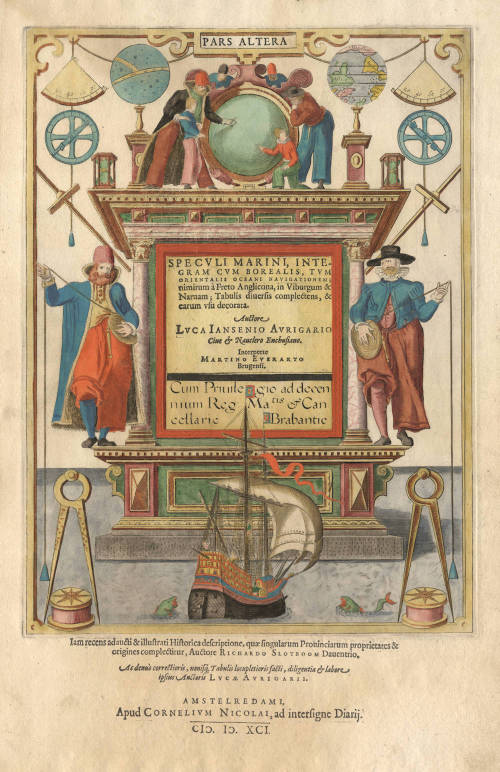 PARS ALTERA
SPECVLI MARINI, INTE-
GRAM CVM BOREALIS, TVM
ORIENTALIS OCEANI NAVIGATIONEM;
nimirum à Freto Anglicona, in Viburgum &
Naruam; Tabulis diuersis complectens, &
earum vsu decorata.
Auctore
LVCA IANSENIO AVRIGARIO
Ciue & Nauclero Enchusiano.
Interprete
MARTINO EVERARTO
Brugensi.
Cum Priuilegio ad decen
nium Reg Ma.tis & Can
cellarie Brabantie
Iam recens adaucti & illustrati Historica descriptione, quæ singularum Prouinciarum proprietates &
origines complectitur, Auctore RICHARDO SLOTBOOM Dauentrio.
Ac denuò correctioris, nouisq. Tabulis locupletioris facti, diligentia & labore
ipsius Auctoris LVCÆ AVRIGARII.
AMSTELREDAMI,
Apud CORNELIVM NICOLAI, ad intersigne Diarij.
CIƆ. IƆ. XCI.